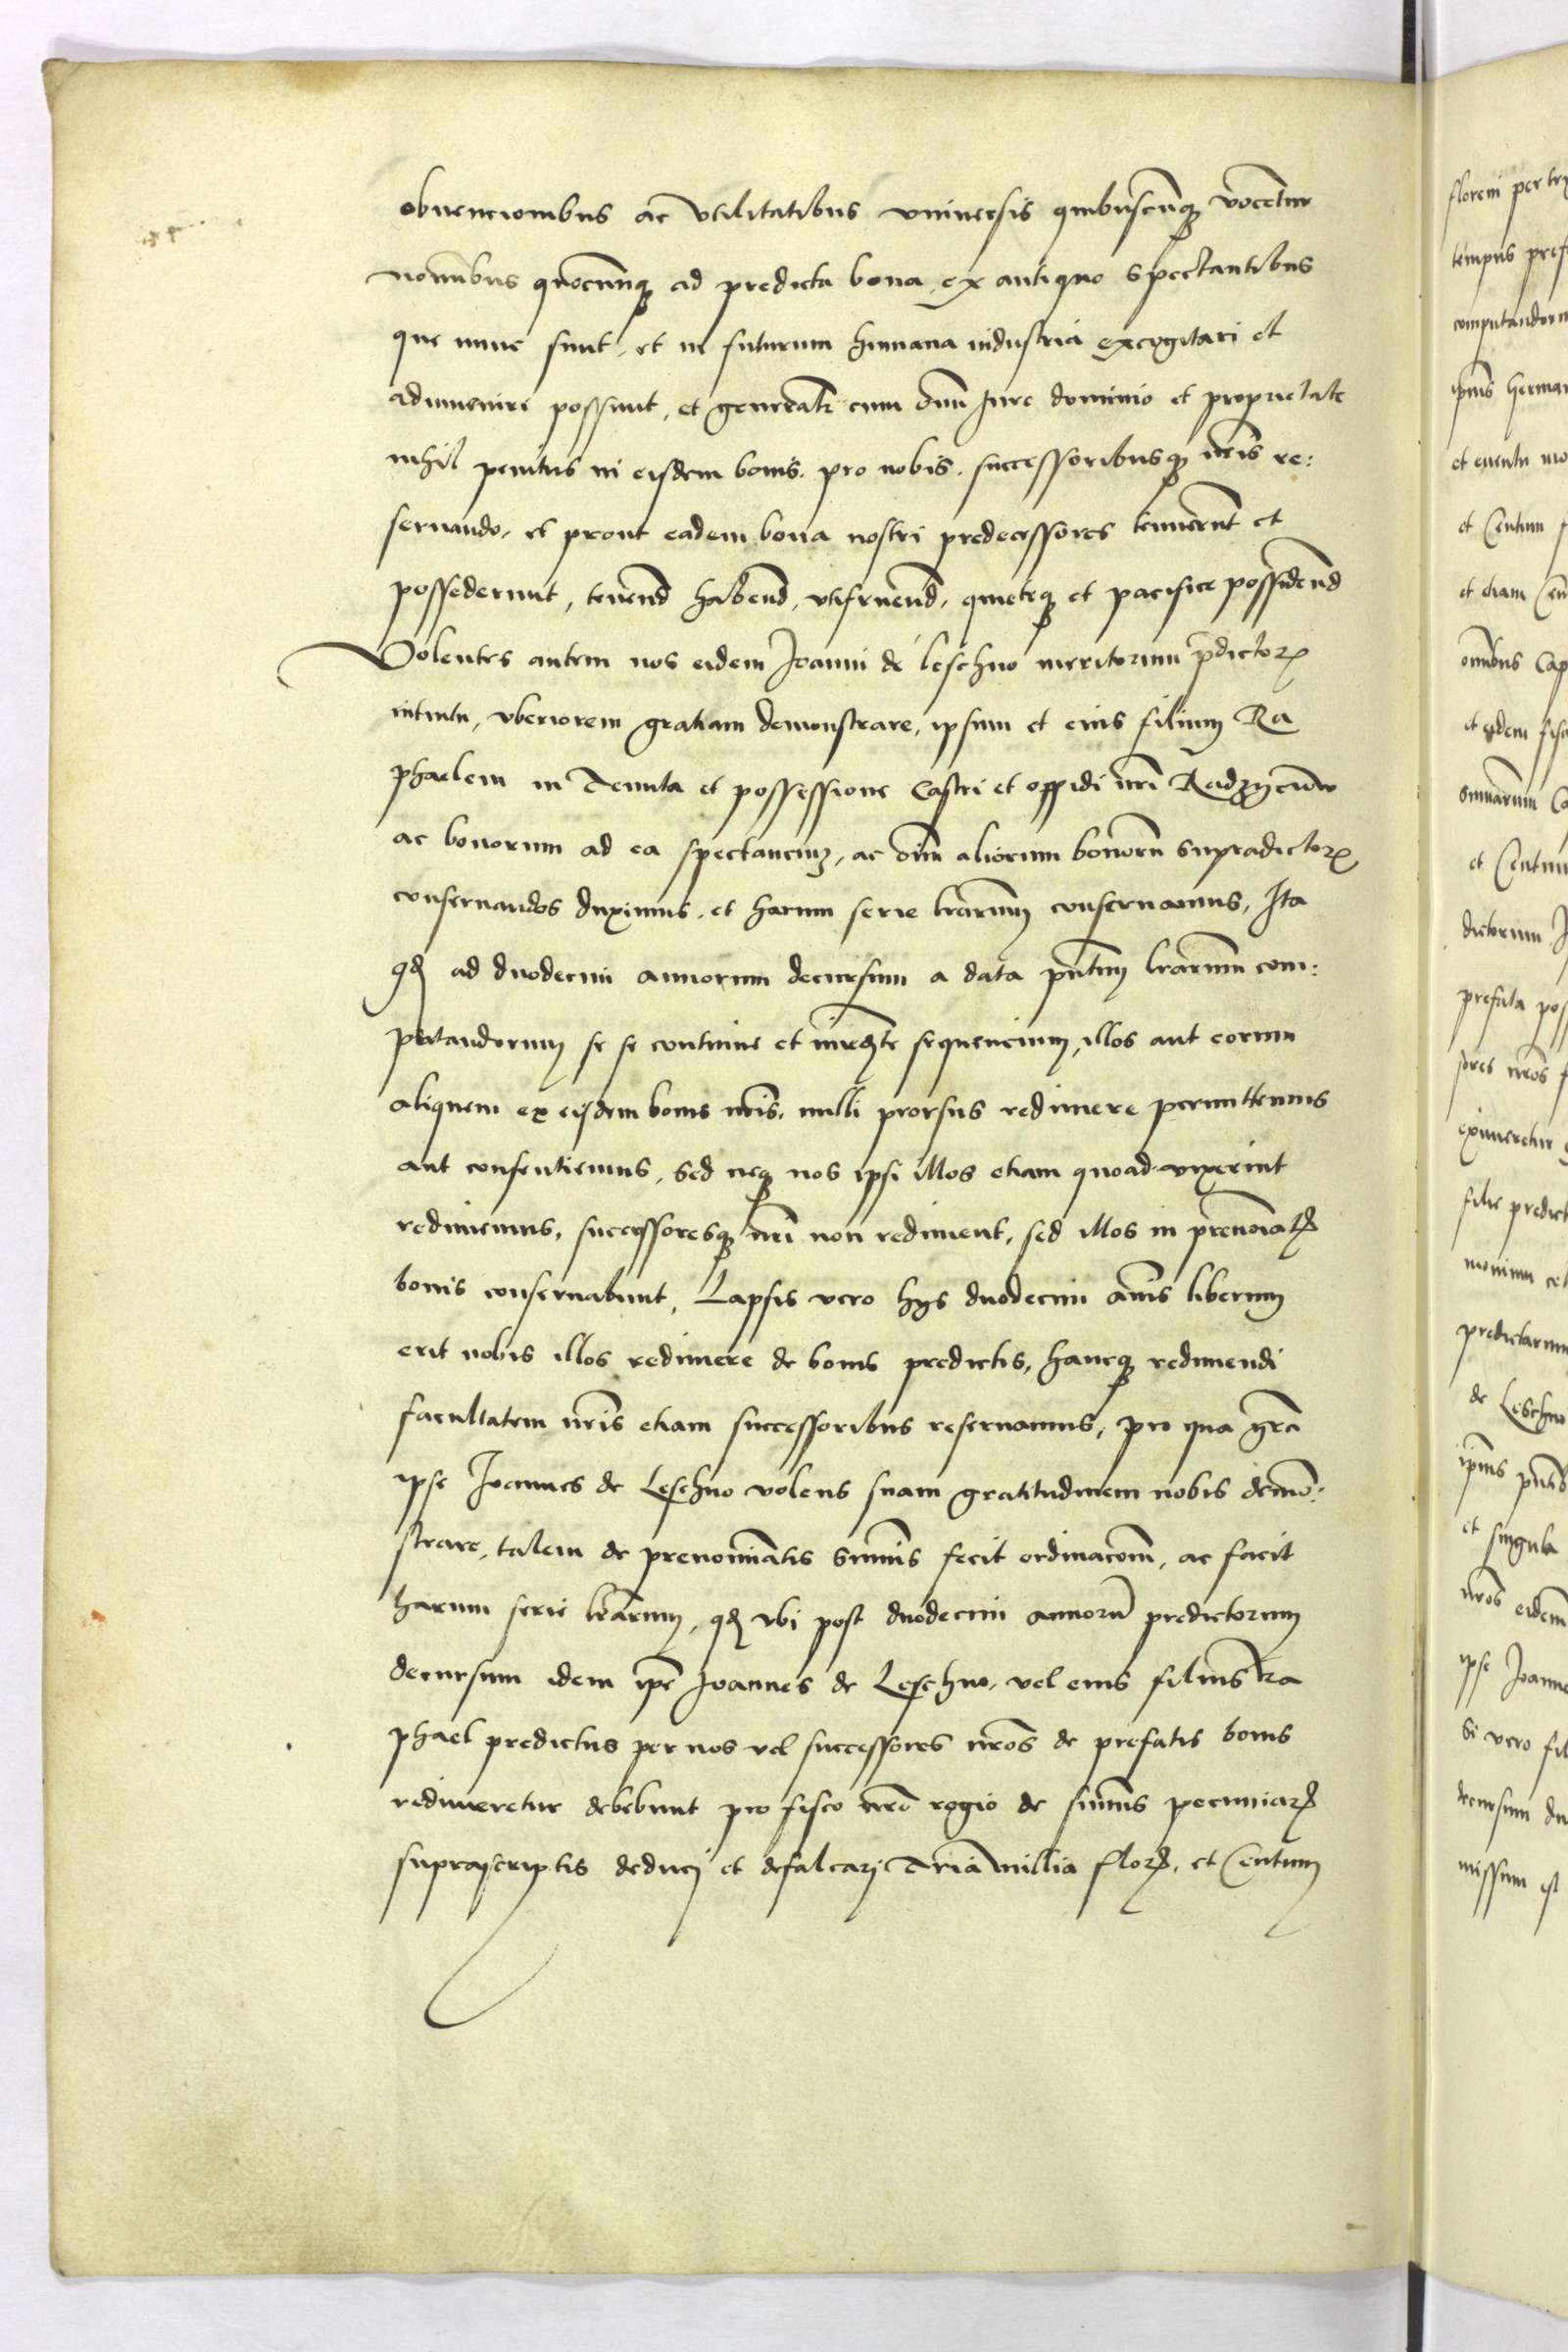 obuencionibus ac vtilitatibus vniuersis quibuscunq vocentur
nominibus quocunq ad predicta bona ex antiquo spectantibus
que nunc sunt, et in futurum humana industria excogitari et
adinueniri possunt, et generalr cum omni Jure dominio et proprietate
nihil penitus in eisdem bonis, pro nobis, successoribusq nris re:
seruando, et prout eadem bona nostri predecessores tenuerunt et
possederunt, tenend habend, vtifruend, quieteq et pacifice possidend
Volentes autem nos eidem Joanni de leschno meritorum pdictorꝝ
intuitu, vberiorem gratiam demonstrare, ipsum et eius filium Ra
phaelem in Tenuta et possessione Castri et oppidi nri Radzyeiow
ac bonorum ad ea spectancium, ac oim aliorum bonorum supradictorꝝ
conseruandos duximus, et harum serie lrarum conseruamus, Ita
qd ad duodecim annorum decursum a data pntium lrarum com:
putandorum se se continue et immediate sequencium, illos aut eorum
aliquem ex eisdem bonis nris, nulli prorsus redimere permittemus
aut consentiemus, sed neq nos ipsi illos etiam quoad vixerint
redimemus, successoresq nri non rediment, sed illos in prenoiatꝭ
bonis conseruabunt, Lapsis vero hijs duodecim annis liberum
erit nobis illos redimere de bonis predictis, hancq redimendi
facultatem nris etiam successoribus reseruamus, pro qua gra
ipse Joannes de Leschno volens suam gratitudinem nobis demon:
strare, talem de prenominatis summis fecit ordinacom, ac facit
harum serie lrarum, qd vbi post duodecim annorum predictorum
decursum idem ipe Joannes de Leschno, vel eius filius Ra
phael predictus per nos vel successores nros de prefatis bonis
redimeretur debebunt pro fisco nro regio de summis pecuniarꝝ
suprascriptis deduci et defalcari Tria millia florꝝ, et Centum
floreni per
tempus pref
computandorum
ipius herman
et euentu mo
et Centum f
et etiam Cen
omibus Cap
et eidem fisc
summarum Ca
et Centum
dictorum J
prefata pos
sores nros f
eximeretur
filie predict
predictarum
de Leschno
ipius pntib
et singula
nros eidem
ipse Joannes
Si vero fil
decursum du
missum est